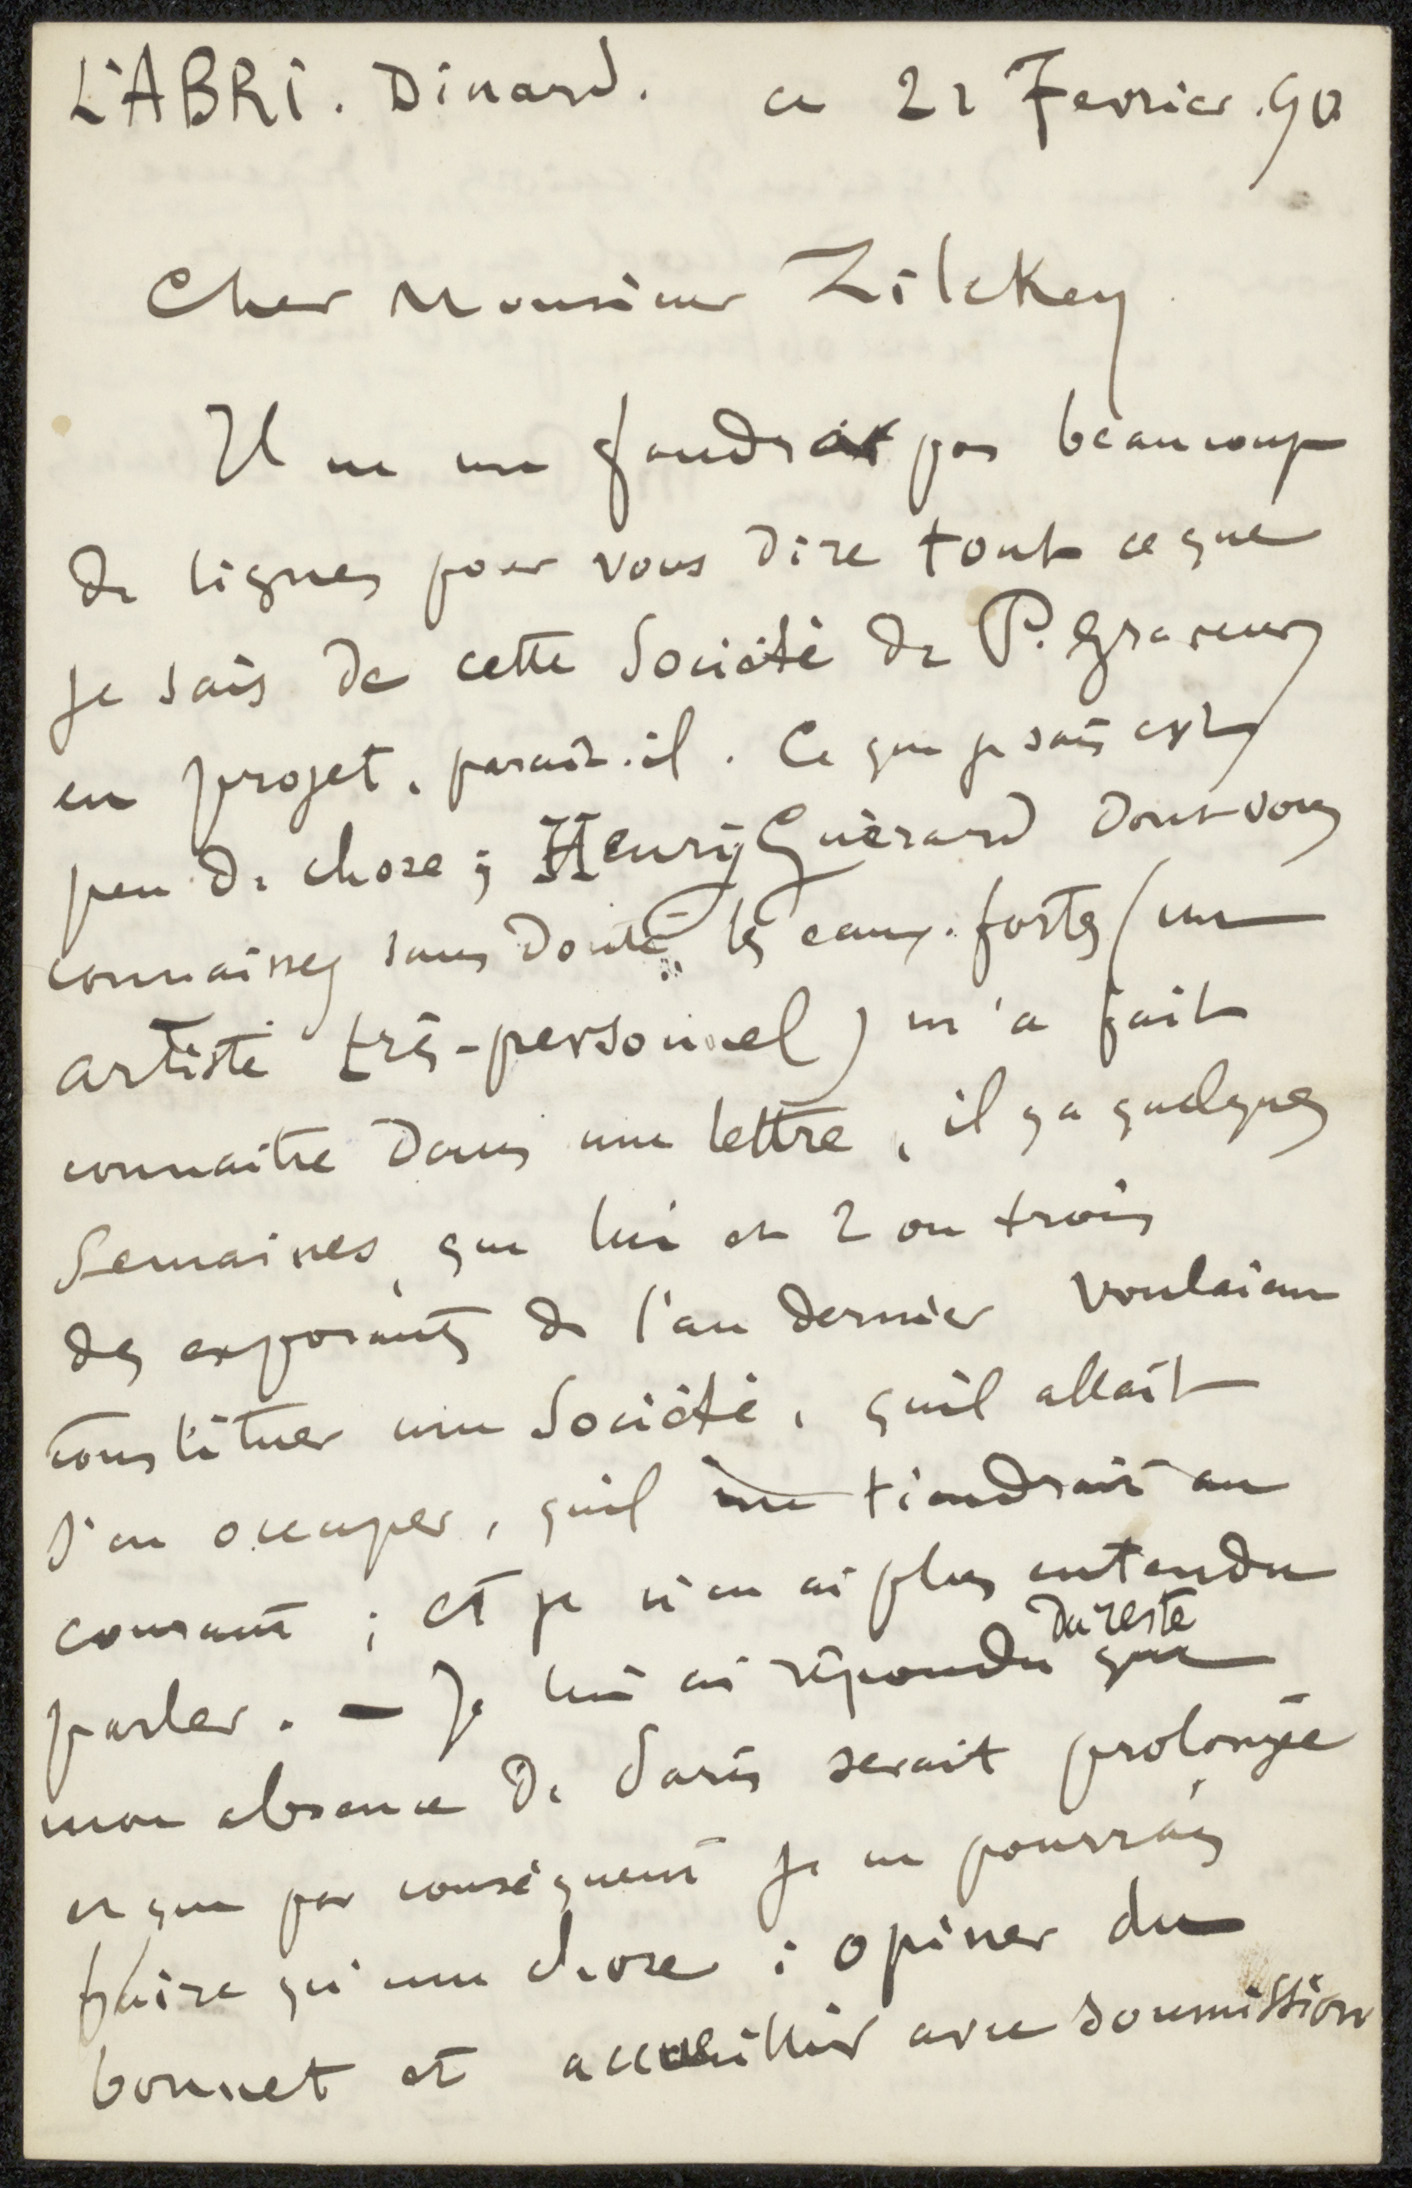 L'ABRI. Dinard. ce 21 Fevrier. 90.
Cher Monsieur Zilckey
Il ne me faudra pas beaucoup
de lignes pour vous dire tout ce que
je sais de cette Société de P. Graveurs
en projet, parait-il. Ce que je sais est
peu de chose ; Henry Guérard dont vous
connaissez sans doute les eaux-fortes (un
artiste très-personnel) m'a fait
connaitre dans une lettre, il y a quelques
Semaines, que lui et 2 ou trois
des exposants de l'an dernier voulaient
constituer une Société, qu'il allait
s'en occuper, qu'il me tiendrait au
courant ; et je n'en ai plus entendu
parler. — Je lui ai répondu du reste que
mon absence de Paris serait prolongée
et que par conséquent je ne pourrais
faire qu'une chose : opiner du
bonnet et accueillir avec soumission